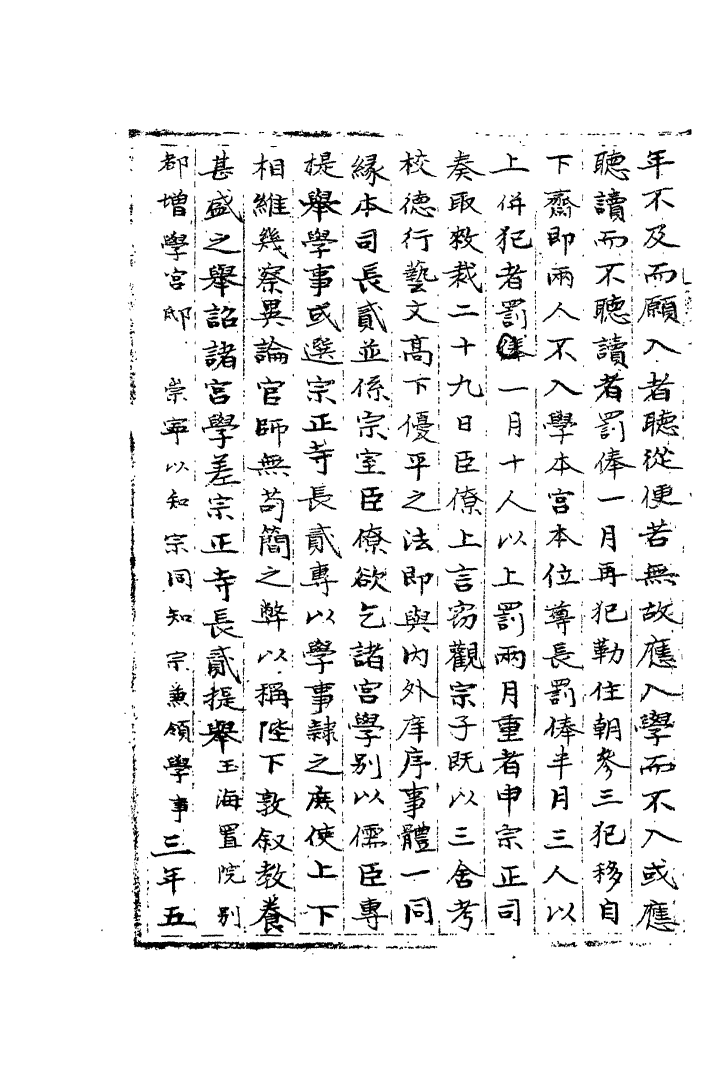 年不及而願入者聽從便若無故應入學而不入或應
聽讀而不聽讀者罰俸一月再犯勒住朝參三犯移自
下齋即兩人不入學本宮本位尊長罰俸半月三人以
上併犯者罰俸一月十人以上罰兩月重者申宗正司
奏取敕裁二十九日臣僚上言竊觀宗子既以三舍考
校德行藝文高下優平之法即與內外庠序事體一同
緣本司長貳並係宗室臣僚欲乞諸宮學別以儒臣專
提舉學事或選宗正寺長貳專以學事隸之庶使上下
相維幾察異論官師無苟簡之弊以稱陛下敦叙教養
甚盛之舉詔諸宮學差宗正寺長貳提舉玉海置院別
都增學宮邸 崇寧以知宗同知宗兼領學事三年五